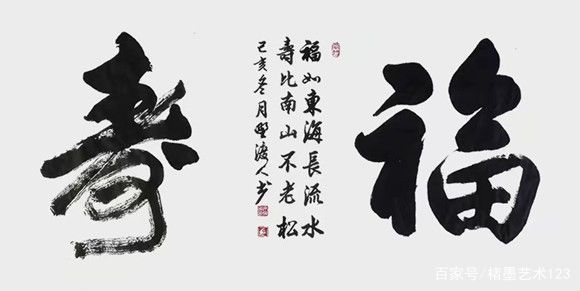 福
福如東海長流水
壽比南山不老松
己亥冬月渡人书
壽
百家号/楮墨艺术123